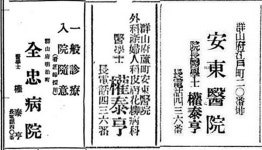 群山府江戸町二〇番地
安東醫院
院長醫學士 權泰亨
長電話四三六番
群山府蘆町安東醫院
外科産婦人科皮膚花柳病科
醫學士 權泰亨
長電話四三六番
一般診療
入院隨意
群山府
全忠病院
醫學士 權泰亨